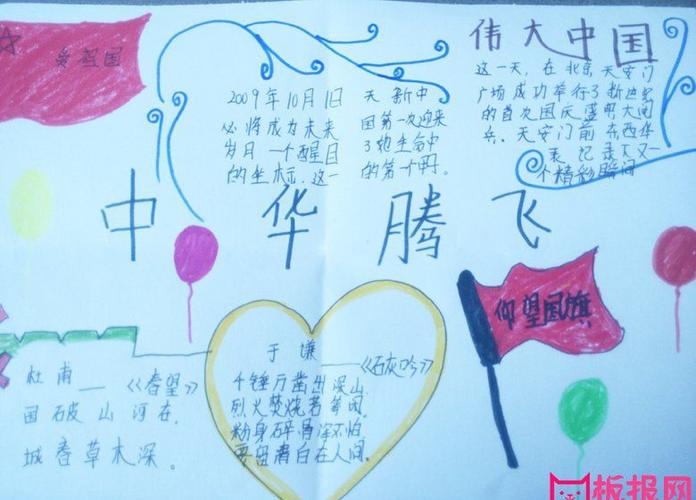 爱祖国
伟大中国
2009年10月1日
必将成为未来
岁月一个醒目
的坐标.这一
天新中
国第一次迎来
了她生命中
的第一个
这一天，在北京天安门
广场成功举行了新世纪
的首次国庆盛典大阅
兵。天安门前东西华
表记录下又一
个精彩瞬间
中华腾飞
仰望国旗
杜甫——《春望》
国破山河在，
城春草木深。
于谦——《石灰吟》
千锤万凿出深山，
烈火焚烧若等闲。
粉身碎骨浑不怕，
要留清白在人间。
板报网